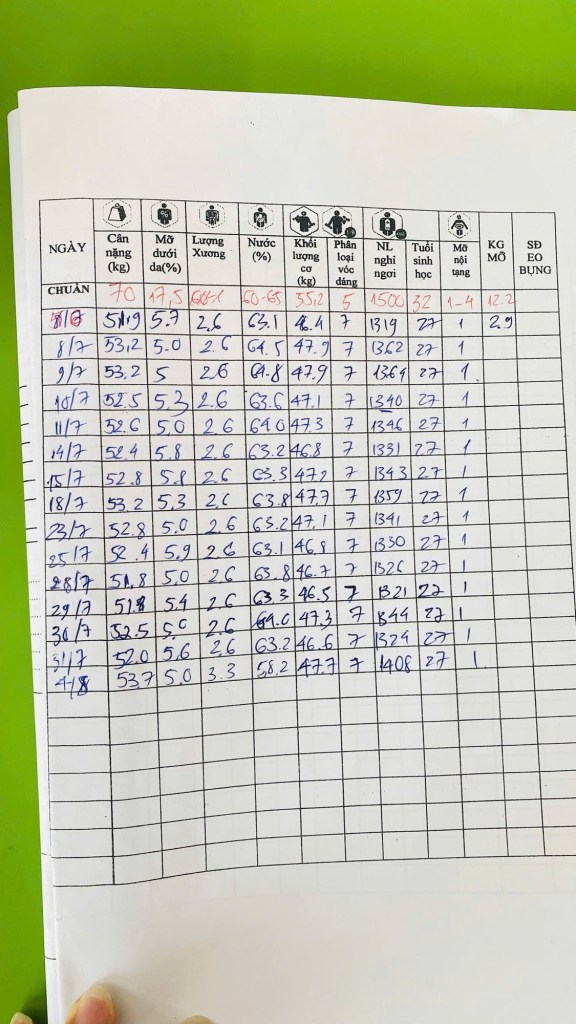 NGÀY Cân nặng (kg) Mỡ dưới da(%) Lượng Xương Nước (%) Khối lượng cơ (kg) Phân loại vóc dáng NL nghỉ ngơi Tuổi sinh học Mỡ nội tạng KG MỠ SĐ EO BỤNG
CHUẨN 70 17,5 60-65 35,2 5 1500 32 1-4 12.2
51,9 5.7 2,6 63.1 46.4 7 1319 27 1 2.9
8/7 53,2 5.0 2.6 64.5 47.9 7 1362 27 1
9/7 53.2 5 2.6 64.8 47.9 7 1364 27 1
10/7 52.5 5.3 2.6 63.6 47.1 7 1340 27 1
11/7 52.6 5.0 2.6 64.0 47.3 7 1346 27 1
14/7 52.4 5.8 2.6 63.2 46.8 7 1331 27 1
15/7 52.8 5.8 2.6 63.3 47.2 7 1343 27 1
18/7 53.2 5.3 2.6 63.8 47.7 7 1359 27 1
23/7 52.8 5.0 2.6 63.2 47.1 7 1341 27 1
25/7 52.4 5.9 2.6 63.1 46.8 7 1330 27 1
28/7 51.8 5.0 2.6 63.8 46.7 7 1326 27 1
29/7 51.8 5.4 2.6 63.3 46.5 7 1321 27 1
30/7 52.5 5.0 2.6 64.0 47.3 7 1344 27 1
31/7 52.0 5.6 2.6 63.2 46.6 7 1324 27 1
4/8 53.7 5.0 3.3 58.2 47.7 7 1408 27 1